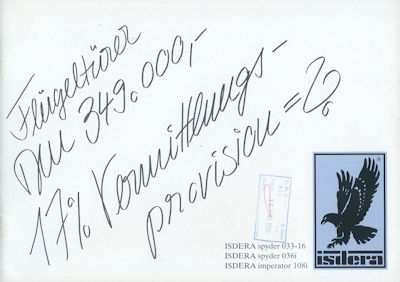 Flügeltürer
DM 349.000,-
17% Vermittlungs-
provision = ?
isdera
ISDERA spyder 033-16
ISDERA spyder 036i
ISDERA imperator 108i